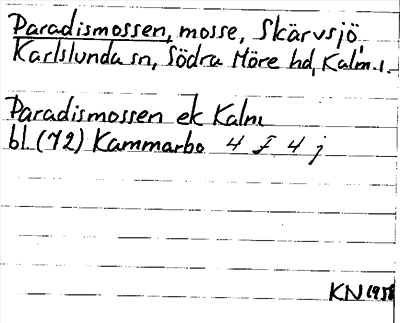 Paradismossen, mosse, Skärvsjö,
Karlslunda sn, Södra Möre hd, Kalm. l.
Paradismossen ek Kalm
bl (72) Kammarbo 4 F 4 j
KN 1958